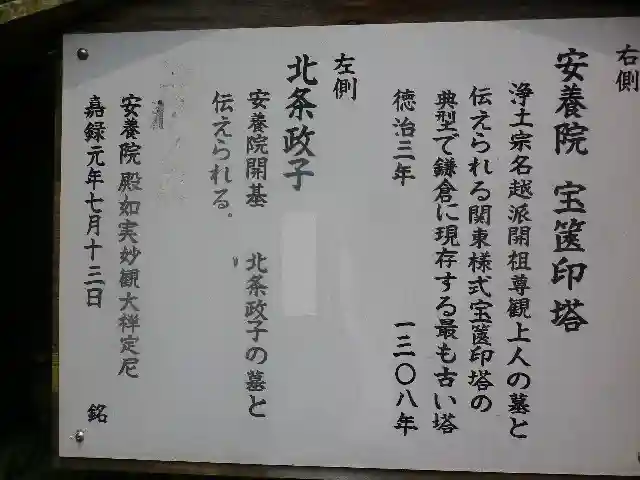 右側
安養院 宝篋印塔
浄土宗名越派開祖尊観上人の墓と
伝えられる関東様式宝篋印塔の
典型で鎌倉に現存する最も古い塔
徳治三年 一三〇八年
左側
北条政子
安養院開基 北条政子の墓と
伝えられる。
安養院殿如実妙観大禅定尼
嘉録元年七月十三日 銘